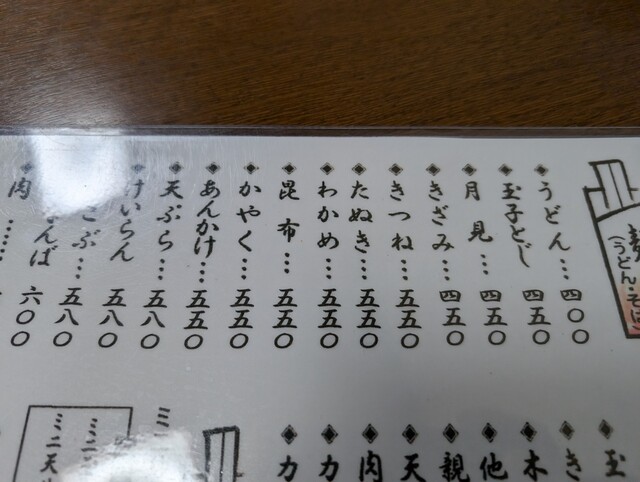 (うどん・そば)
うどん…四〇〇
玉子とじ 四五〇
月見…四五〇
きざみ…四五〇
きつね…五五〇
たぬき…五五〇
わかめ…五五〇
昆布…五五〇
かやく…五五〇
あんかけ…五五〇
天ぷら…五八〇
けいらん 五八〇
こぶ…五八〇
んば 六〇〇
肉……
玉
き
木
他
親
天
肉
カ
カ
ミニ
ミニ天